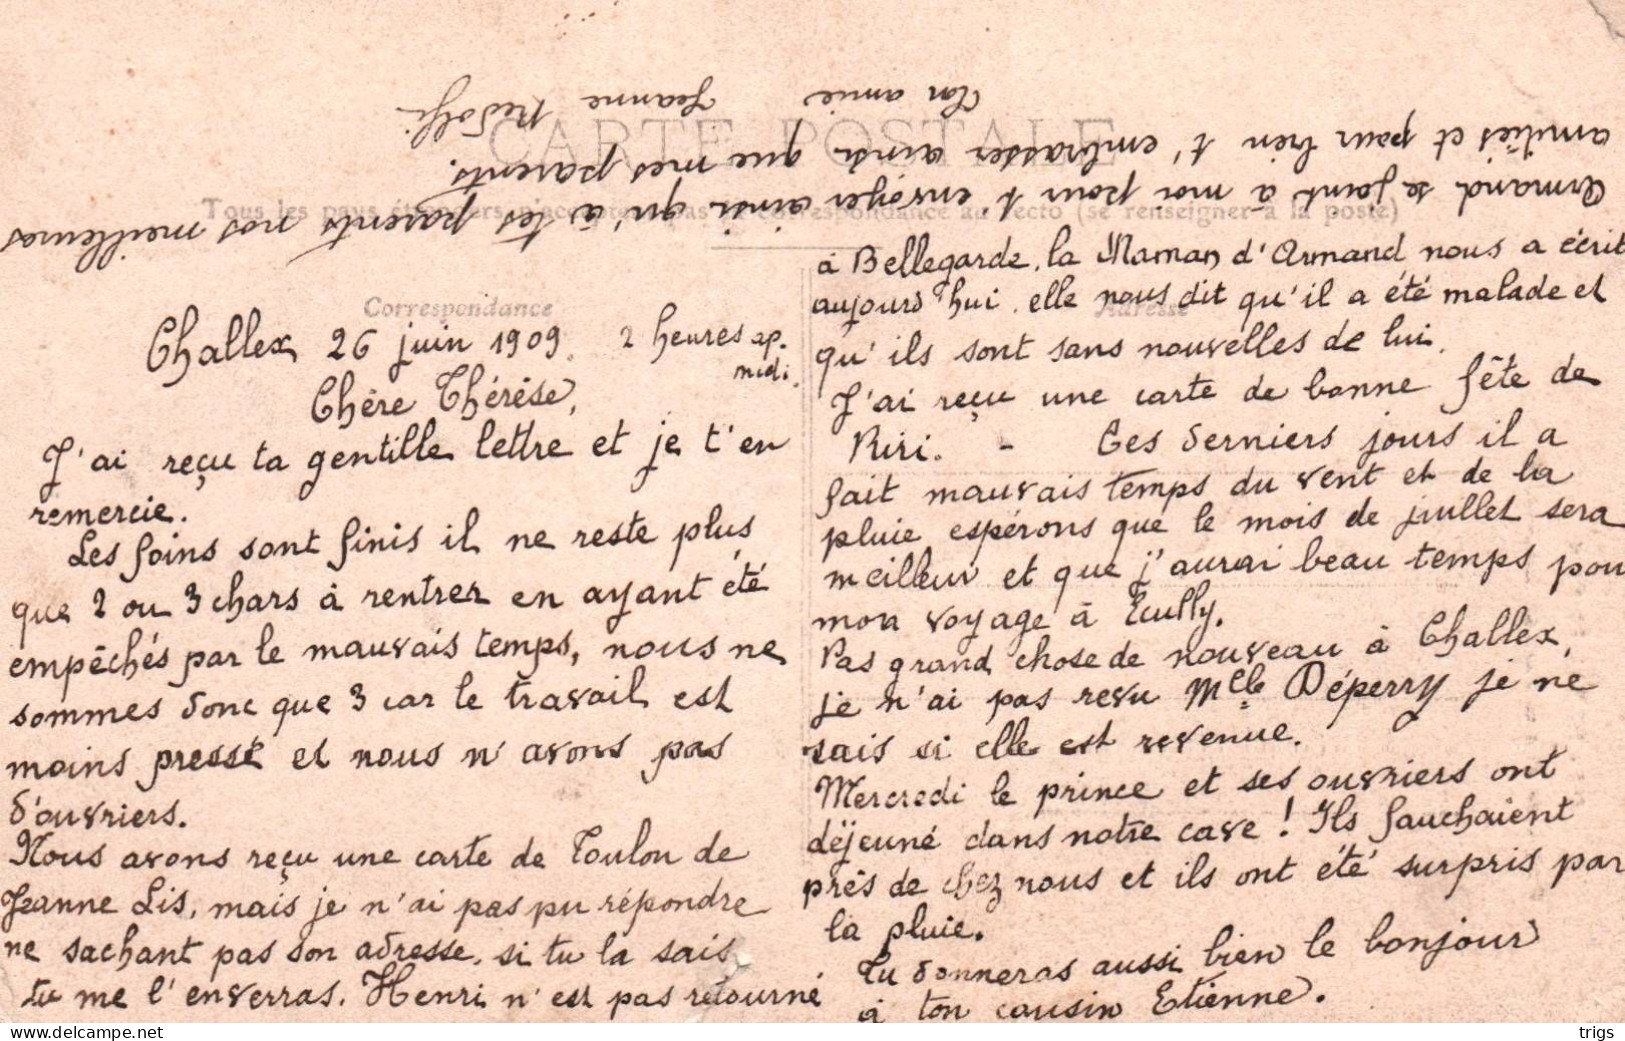 CARTE POSTALE
Tous les pays étrangers n'acceptent pas la correspondance au recto (se renseigner à la poste)
Correspondance
Adresse
Challex 26 juin 1909. 2 heures ap.
midi.
Chère Thérèse,
J'ai reçu ta gentille lettre et je t'en
remercie.
Les foins sont finis il ne reste plus
que 2 ou 3 chars à rentrer en ayant été
empêchés par le mauvais temps, nous ne
sommes donc que 3 car le travail est
moins pressé et nous n'avons pas
d'ouvriers.
Nous avons reçu une carte de Toulon de
Jeanne Lis, mais je n'ai pas pu répondre
ne sachant pas son adresse, si tu la sais
tu me l'enverras. Henri n'est pas retourné
à Bellegarde, la Maman d'Armand nous a écrit
aujourd'hui, elle nous dit qu'il a été malade et
qu'ils sont sans nouvelles de lui.
J'ai reçu une carte de bonne fête de
Riri. - Ces derniers jours il a
fait mauvais temps du vent et de la
pluie espérons que le mois de juillet sera
meilleur et que j'aurai beau temps pour
mon voyage à Ecully.
Pas grand chose de nouveau à Challex,
je n'ai pas revu Melle Déperry je ne
sais si elle est revenue.
Mercredi le prince et ses ouvriers ont
déjeuné dans notre cave ! Ils fauchaient
près de chez nous et ils ont été surpris par
la pluie.
Tu donneras aussi bien le bonjour
à ton cousin Etienne.
Armand se joint à moi pour t'envoyer ainsi qu'à tes parents nos meilleures
amitiés et pour bien t'embrasser ainsi que mes parents.
Ton amie Jeanne Redolfi
www.delcampe.net
trigs